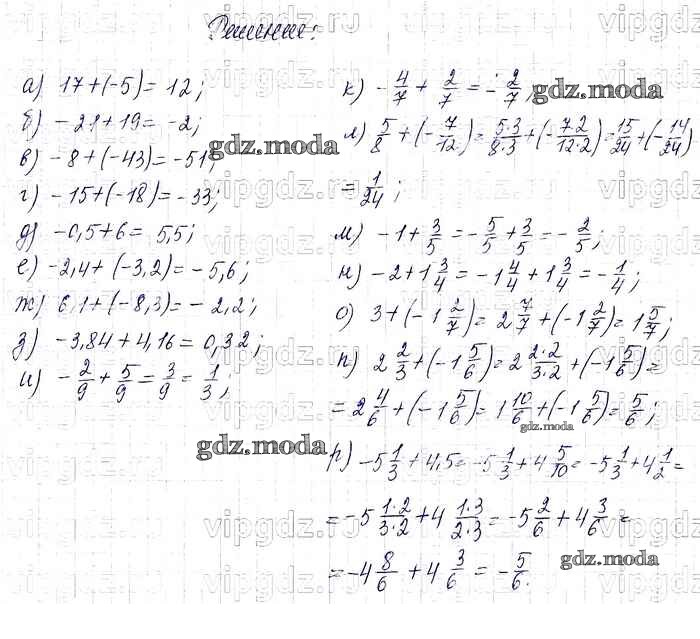 Решение:
а) 17+(-5)= 12;
б) -21+19= -2;
в) -8+(-43)= -51;
г) -15+(-18)= -33;
д) -0,5+6= 5,5;
е) -2,4+(-3,2)= -5,6;
ж) 6,1+(-8,3)= -2,2;
з) -3,84+4,16= 0,32;
и) -2/9 + 5/9 = 3/9 = 1/3;
к) -4/7 + 2/7 = -2/7;
л) 5/8 + (-7/12) = 5·3/8·3 + (-7·2/12·2) = 15/24 + (-14/24)
= 1/24;
м) -1+ 3/5 = -5/5 + 3/5 = -2/5;
н) -2+1 3/4 = -1 4/4 + 1 3/4 = -1/4;
о) 3+(-1 2/7)= 2 7/7 +(-1 2/7)= 1 5/7;
п) 2 2/3 +(-1 5/6)= 2 2·2/3·2 +(-1 5/6)=
= 2 4/6 +(-1 5/6)= 1 10/6 +(-1 5/6)= 5/6;
р) -5 1/3 + 4,5= -5 1/3 + 4 5/10 = -5 1/3 + 4 1/2 =
= -5 1·2/3·2 + 4 1·3/2·3 = -5 2/6 + 4 3/6 =
= -4 8/6 + 4 3/6 = -5/6.
gdz.moda
gdz.moda
gdz.moda
gdz.moda
gdz.moda
vipgdz.ru